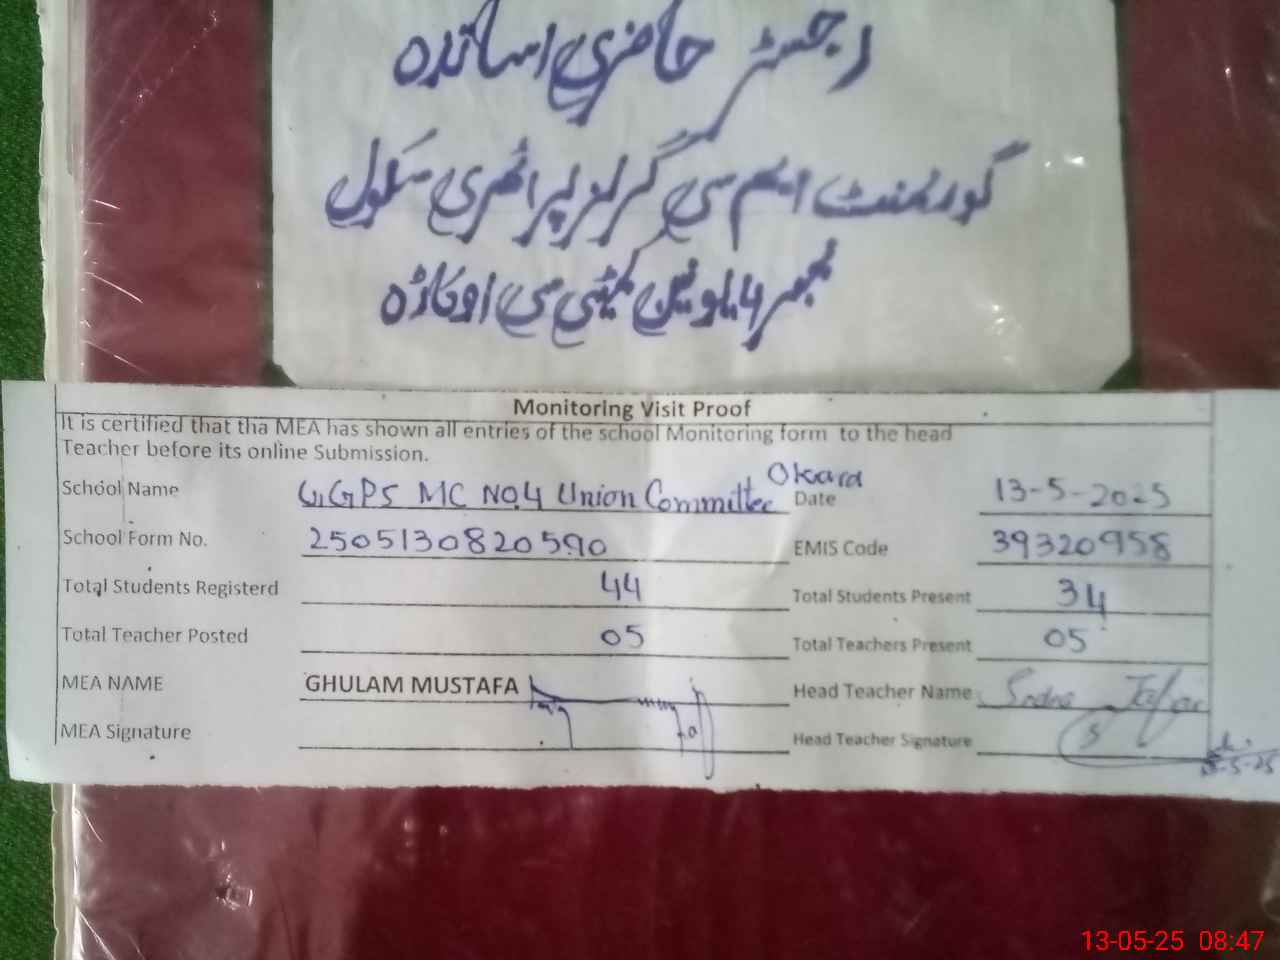 رجسٹر حاضری اساتذہ
گورنمنٹ ایم سی گرلز پرائمری سکول
نمبر 4 یونین کمیٹی سی اوکاڑہ
Monitoring Visit Proof
It is certified that tha MEA has shown all entries of the school Monitoring form to the head
Teacher before its online Submission.
School Name GGPS MC NO.4 Union Committee Okara Date 13-5-2025
School Form No. 2505130820590 EMIS Code 39320958
Total Students Registerd 44 Total Students Present 34
Total Teacher Posted 05 Total Teachers Present 05
MEA NAME GHULAM MUSTAFA Head Teacher Name
MEA Signature Head Teacher Signature
13-05-25 08:47